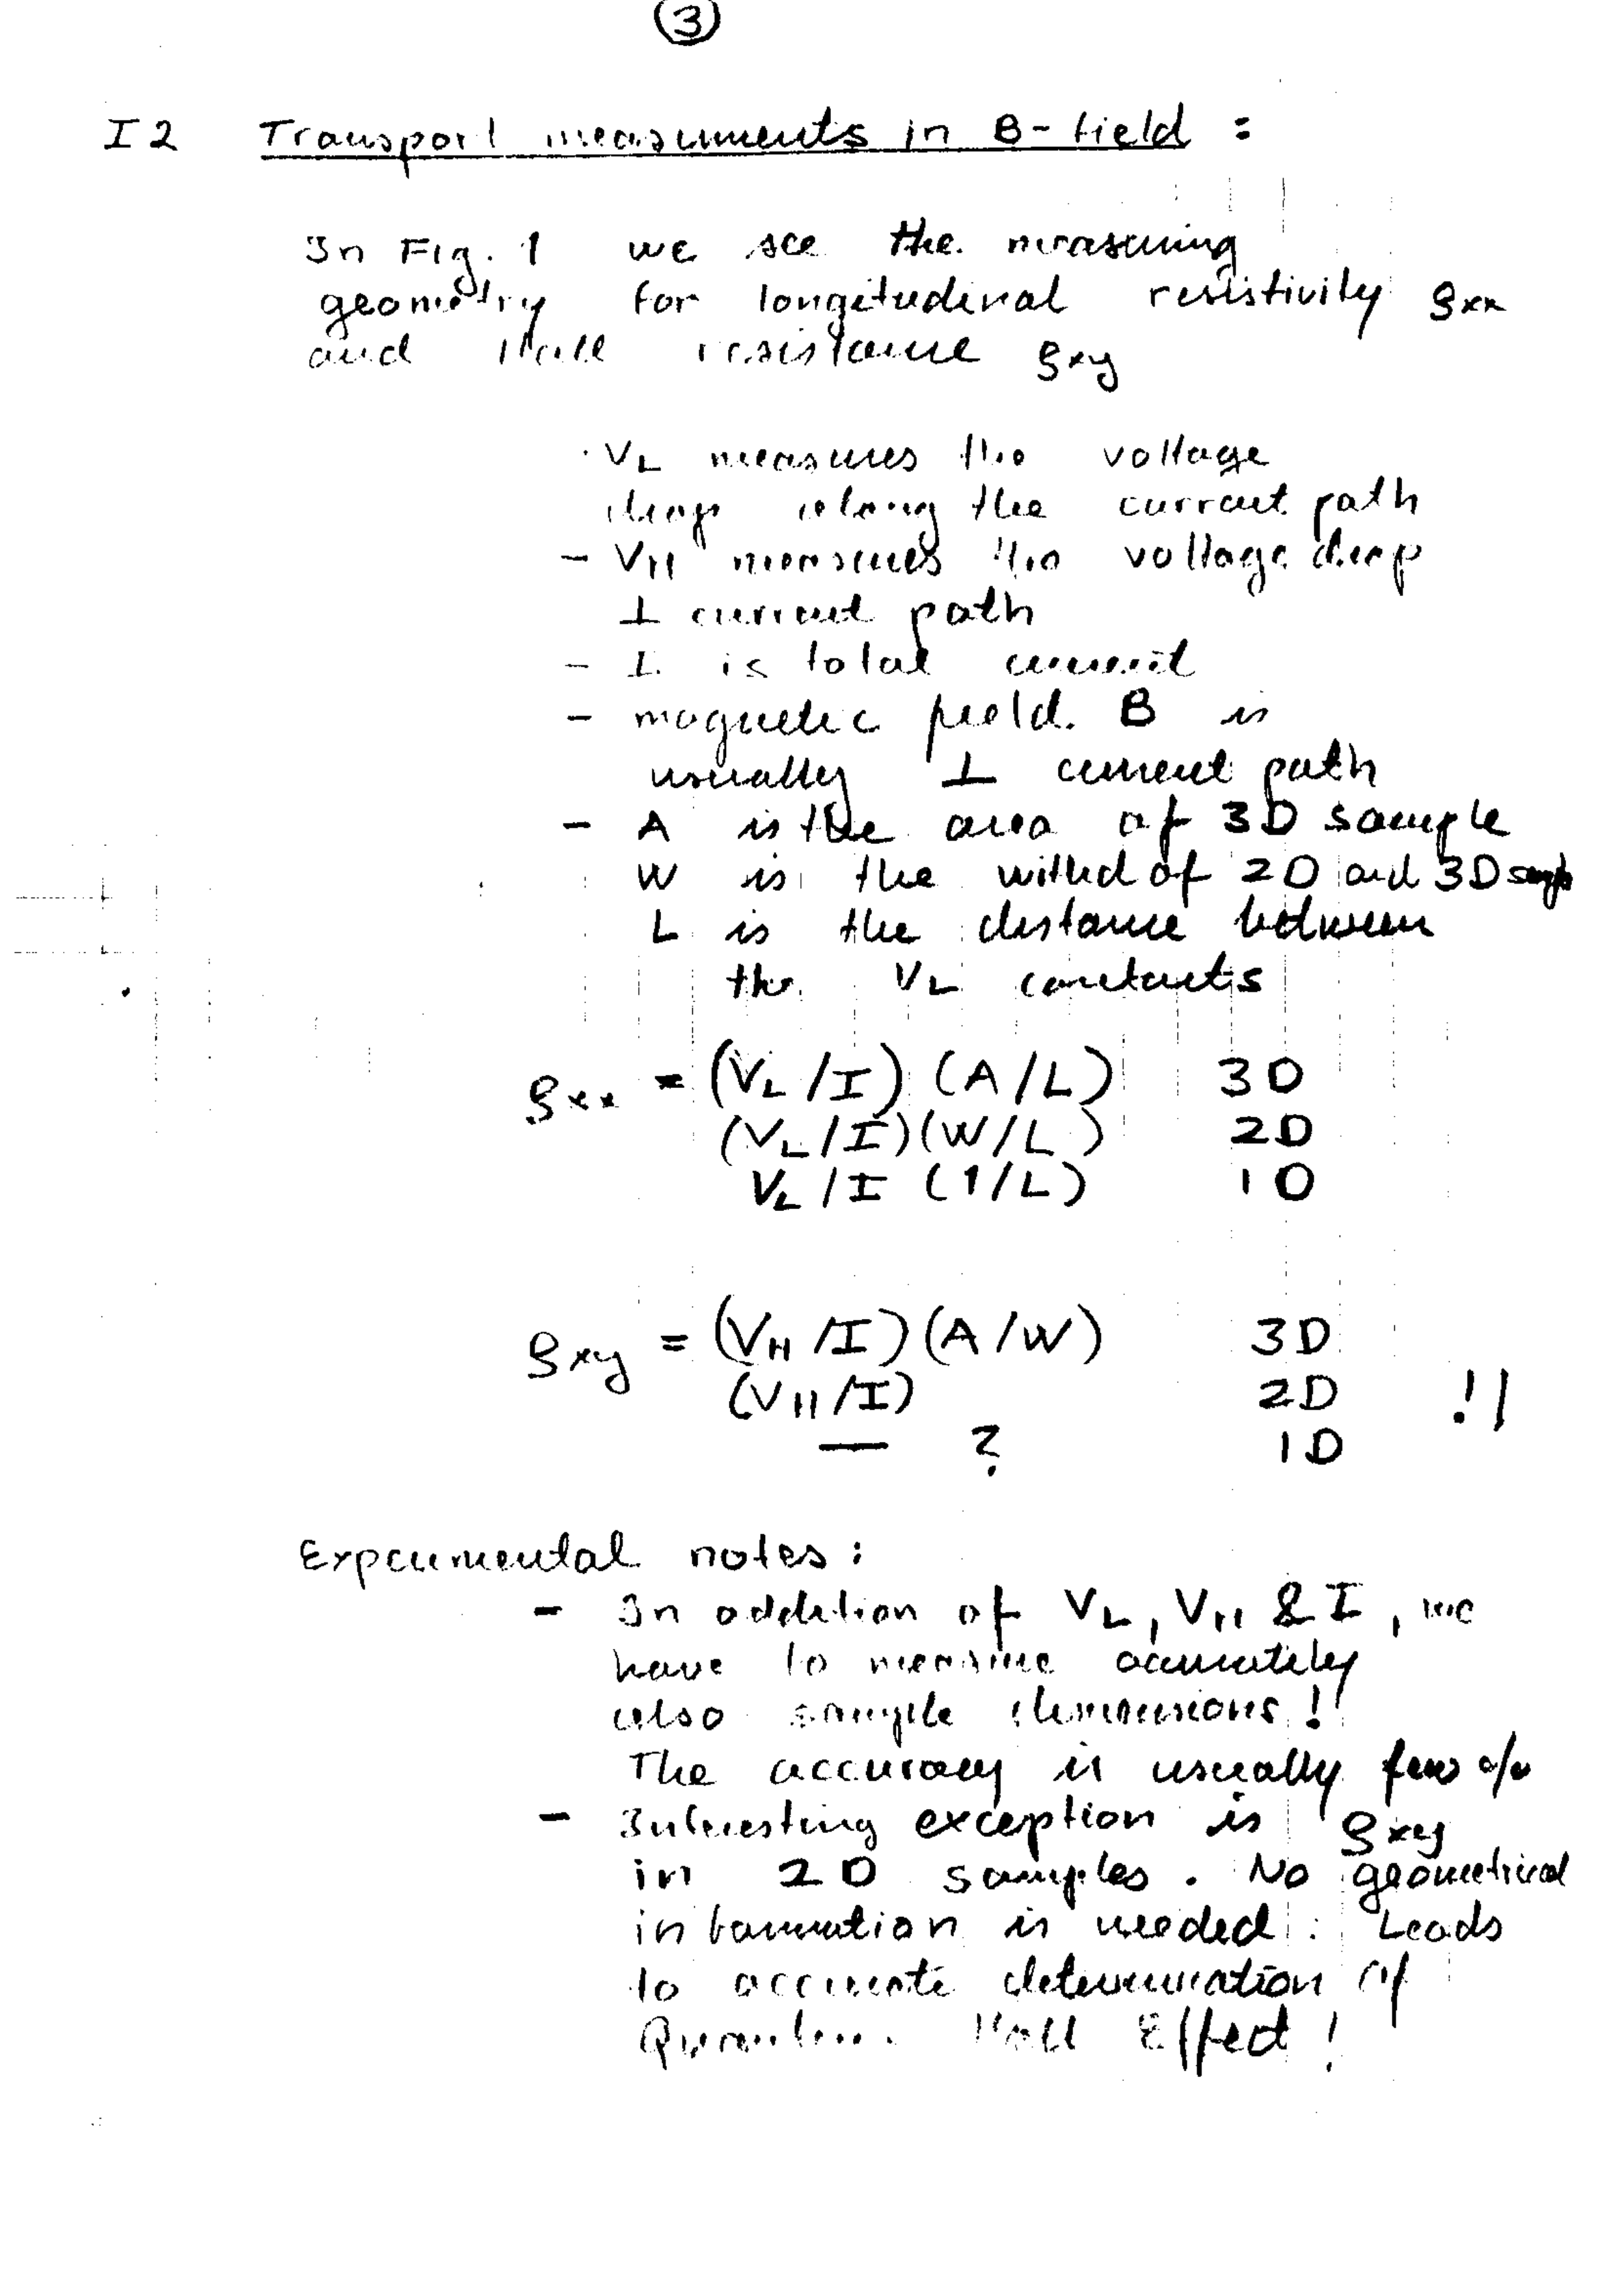 3
I 2 Transport measurments in B-field :
In Fig. 1 we see the measuring
geometry for longitudinal resistivity ρxx
and Hall resistance ρxy
- VL measures the voltage
drop along the current path
- VH measures the voltage drop
⊥ current path
- I is total current
- magnetic field B is
usually ⊥ current path
- A is the area of 3D sample
W is the withd of 2D and 3D
L is the distance between
the VL contacts
ρxx = (VL/I) (A/L) 3D
(VL/I)(W/L) 2D
VL/I (1/L) 1D
ρxy = (VH/I)(A/W) 3D
(VH/I) 2D !!
— ? 1D
Experimental notes :
- In addition of VL, VH & I, we
have to measure accurately
also sample dimensions !
The accuracy is usually few %
- Interesting exception is ρxy
in 2D samples. No geometrical
information is needed. Leads
to accurate determination of
Quantum Hall Effect !